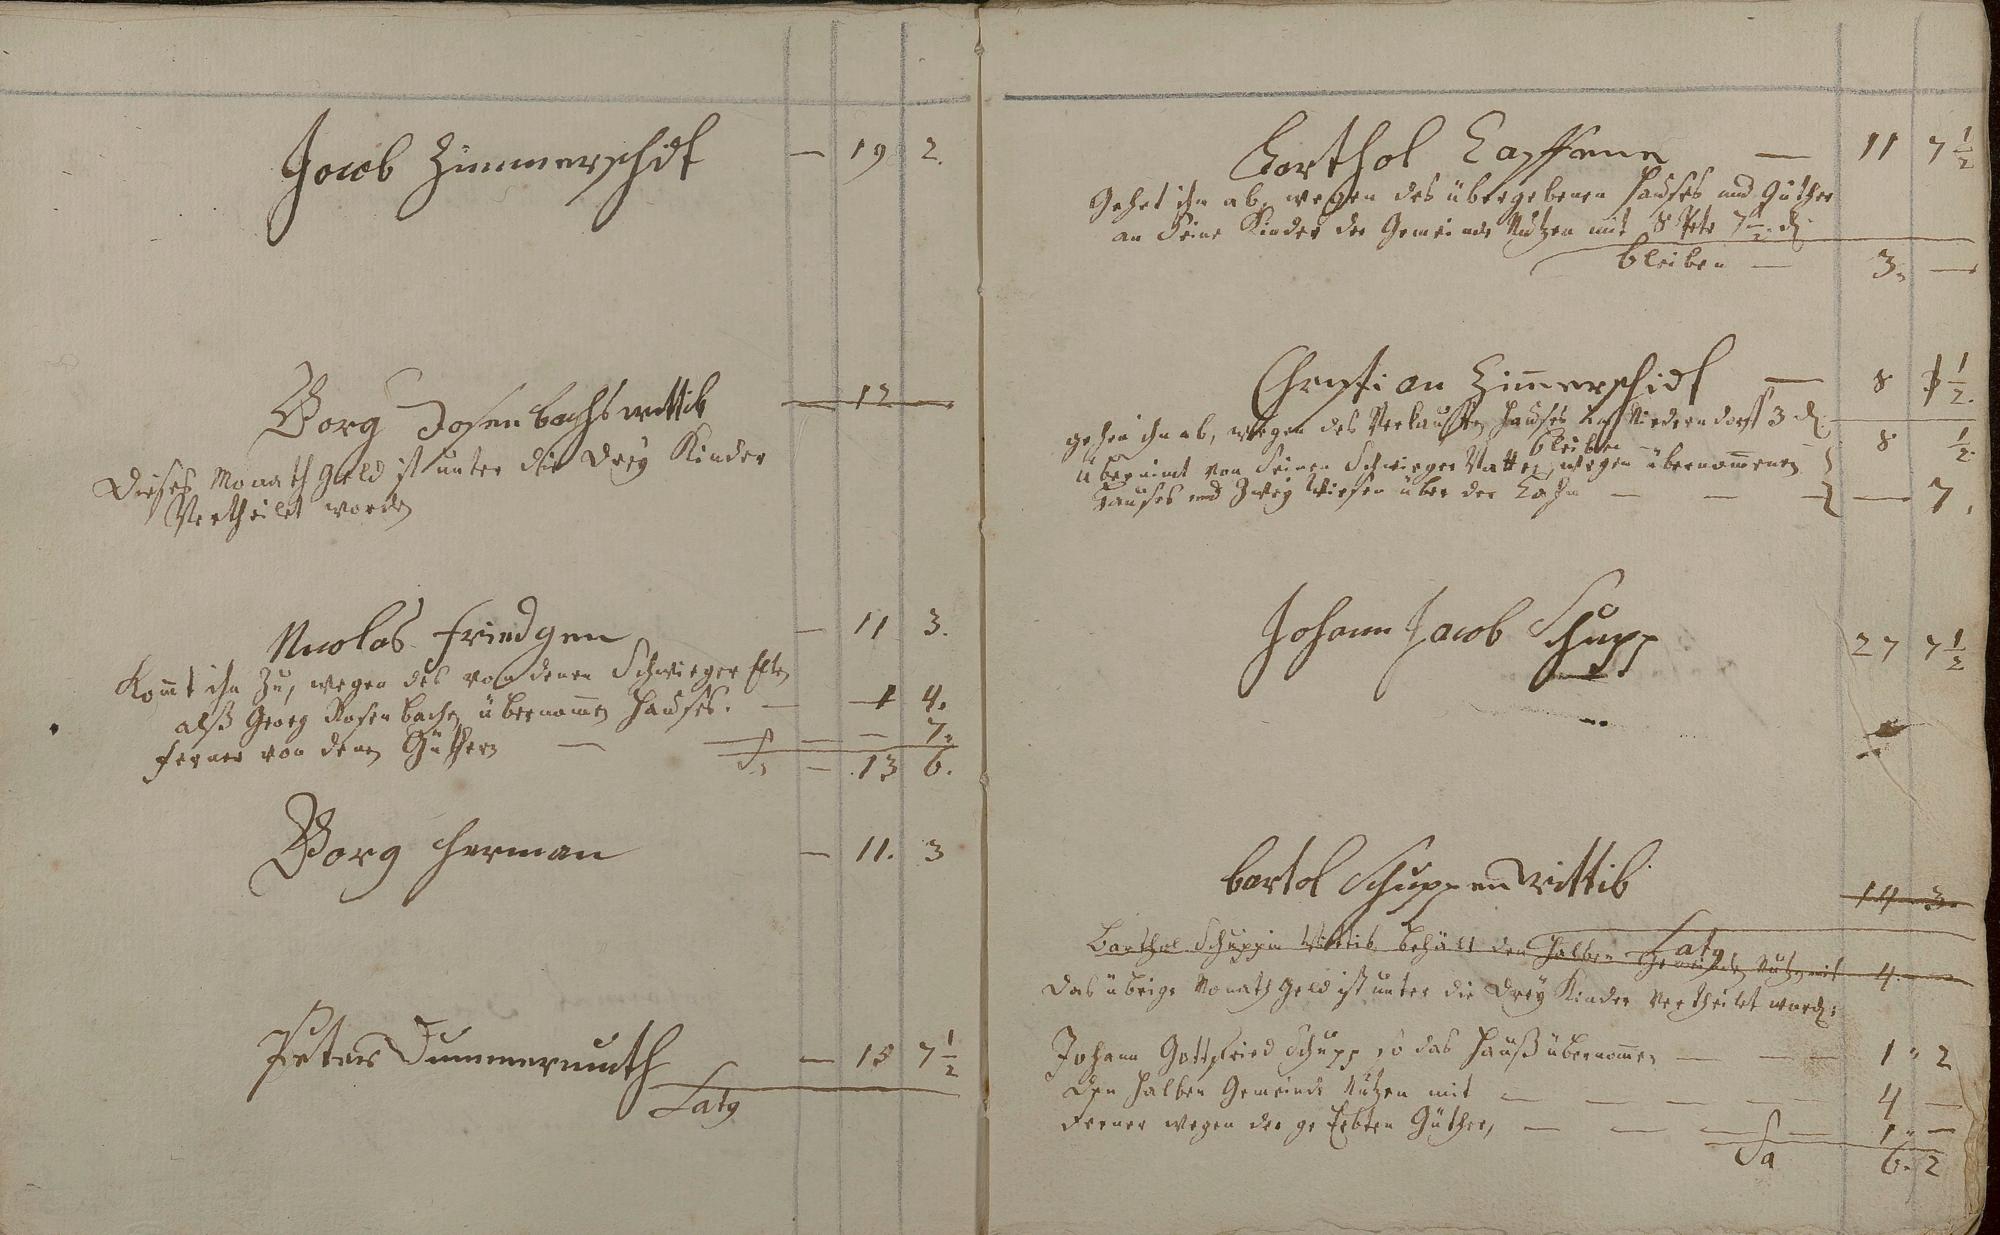 Jacob Zimmerschidt — 19 2.
Görg Rosenbachs wittib — 12 —
Dieses Monath geld ist unter die Drey Kinder
Vertheilet worden
Nicolas friedgen — 11 3.
Komt ihm zu, wegen des von denen Schwieger Elten
alß Georg Rosenbachen übernommen Hauses. — 1 4.
ferner von denen Güthern — — — 7.
Sa — 13 6.
Görg Herman — 11. 3
Peter Dummermuth — 15 7 1/2
Latg
Barthol — 11 7 1/2
Gehet ihm ab, wegen des übergebenen Hauses und Güther
an Seine Kinder der Gemeinde Nutzen mit 8 Pete 7 1/2 d
bleiben — 3. —
Christian Zimmerschidt — 8 3 1/2.
gehen ihm ab, wegen des Verkaufften Hauses Niederndorff 3 d.
bleiben 8 1/2.
Übernimt von Seinen Schwieger Vatter, wegen übernommenen
Hauses und Zwey Wiesen über der Lahn — — — 7.
Johann Jacob Schupp 27 7 1/2
bartol Schuppen wittib 14 3.
Latg
Barthol Schuppin Wittib behält den halben Gemeinde Nutzen mit 4. —
Das übrige Monath geld ist unter die Drey Kinder Vertheilet word:
Johann Gottfried Schupp so das Hauß übernommen — — — 1 " 2
Den halben Gemeinds Nutzen mit — — — — — 4 —
Ferner wegen der geErbten Güther, — — — — 1 " —
Sa 6. 2